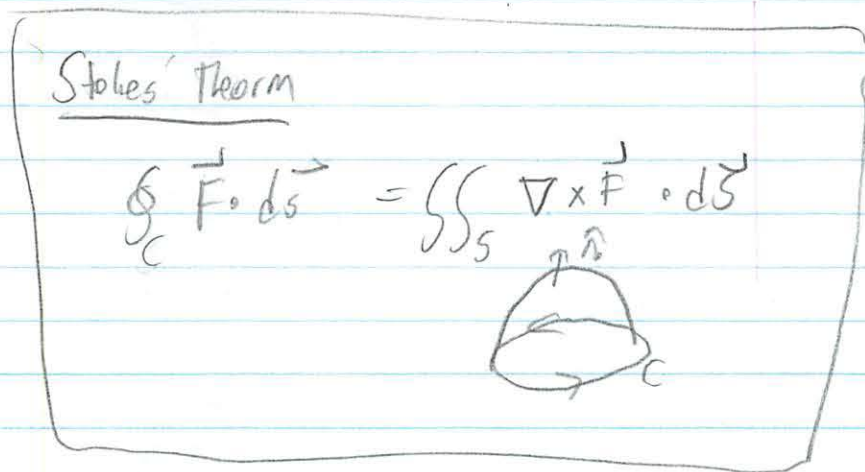 Stokes' Theorm
∮_C F⃗ · ds⃗ = ∬_S ∇ × F⃗ · dS⃗
n̂
C